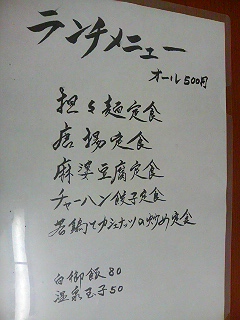 ランチメニュー
オール500円
担々麺定食
唐揚定食
麻婆豆腐定食
チャーハン餃子定食
若鶏とカシューナッツの炒め定食
白御飯80
温泉玉子50